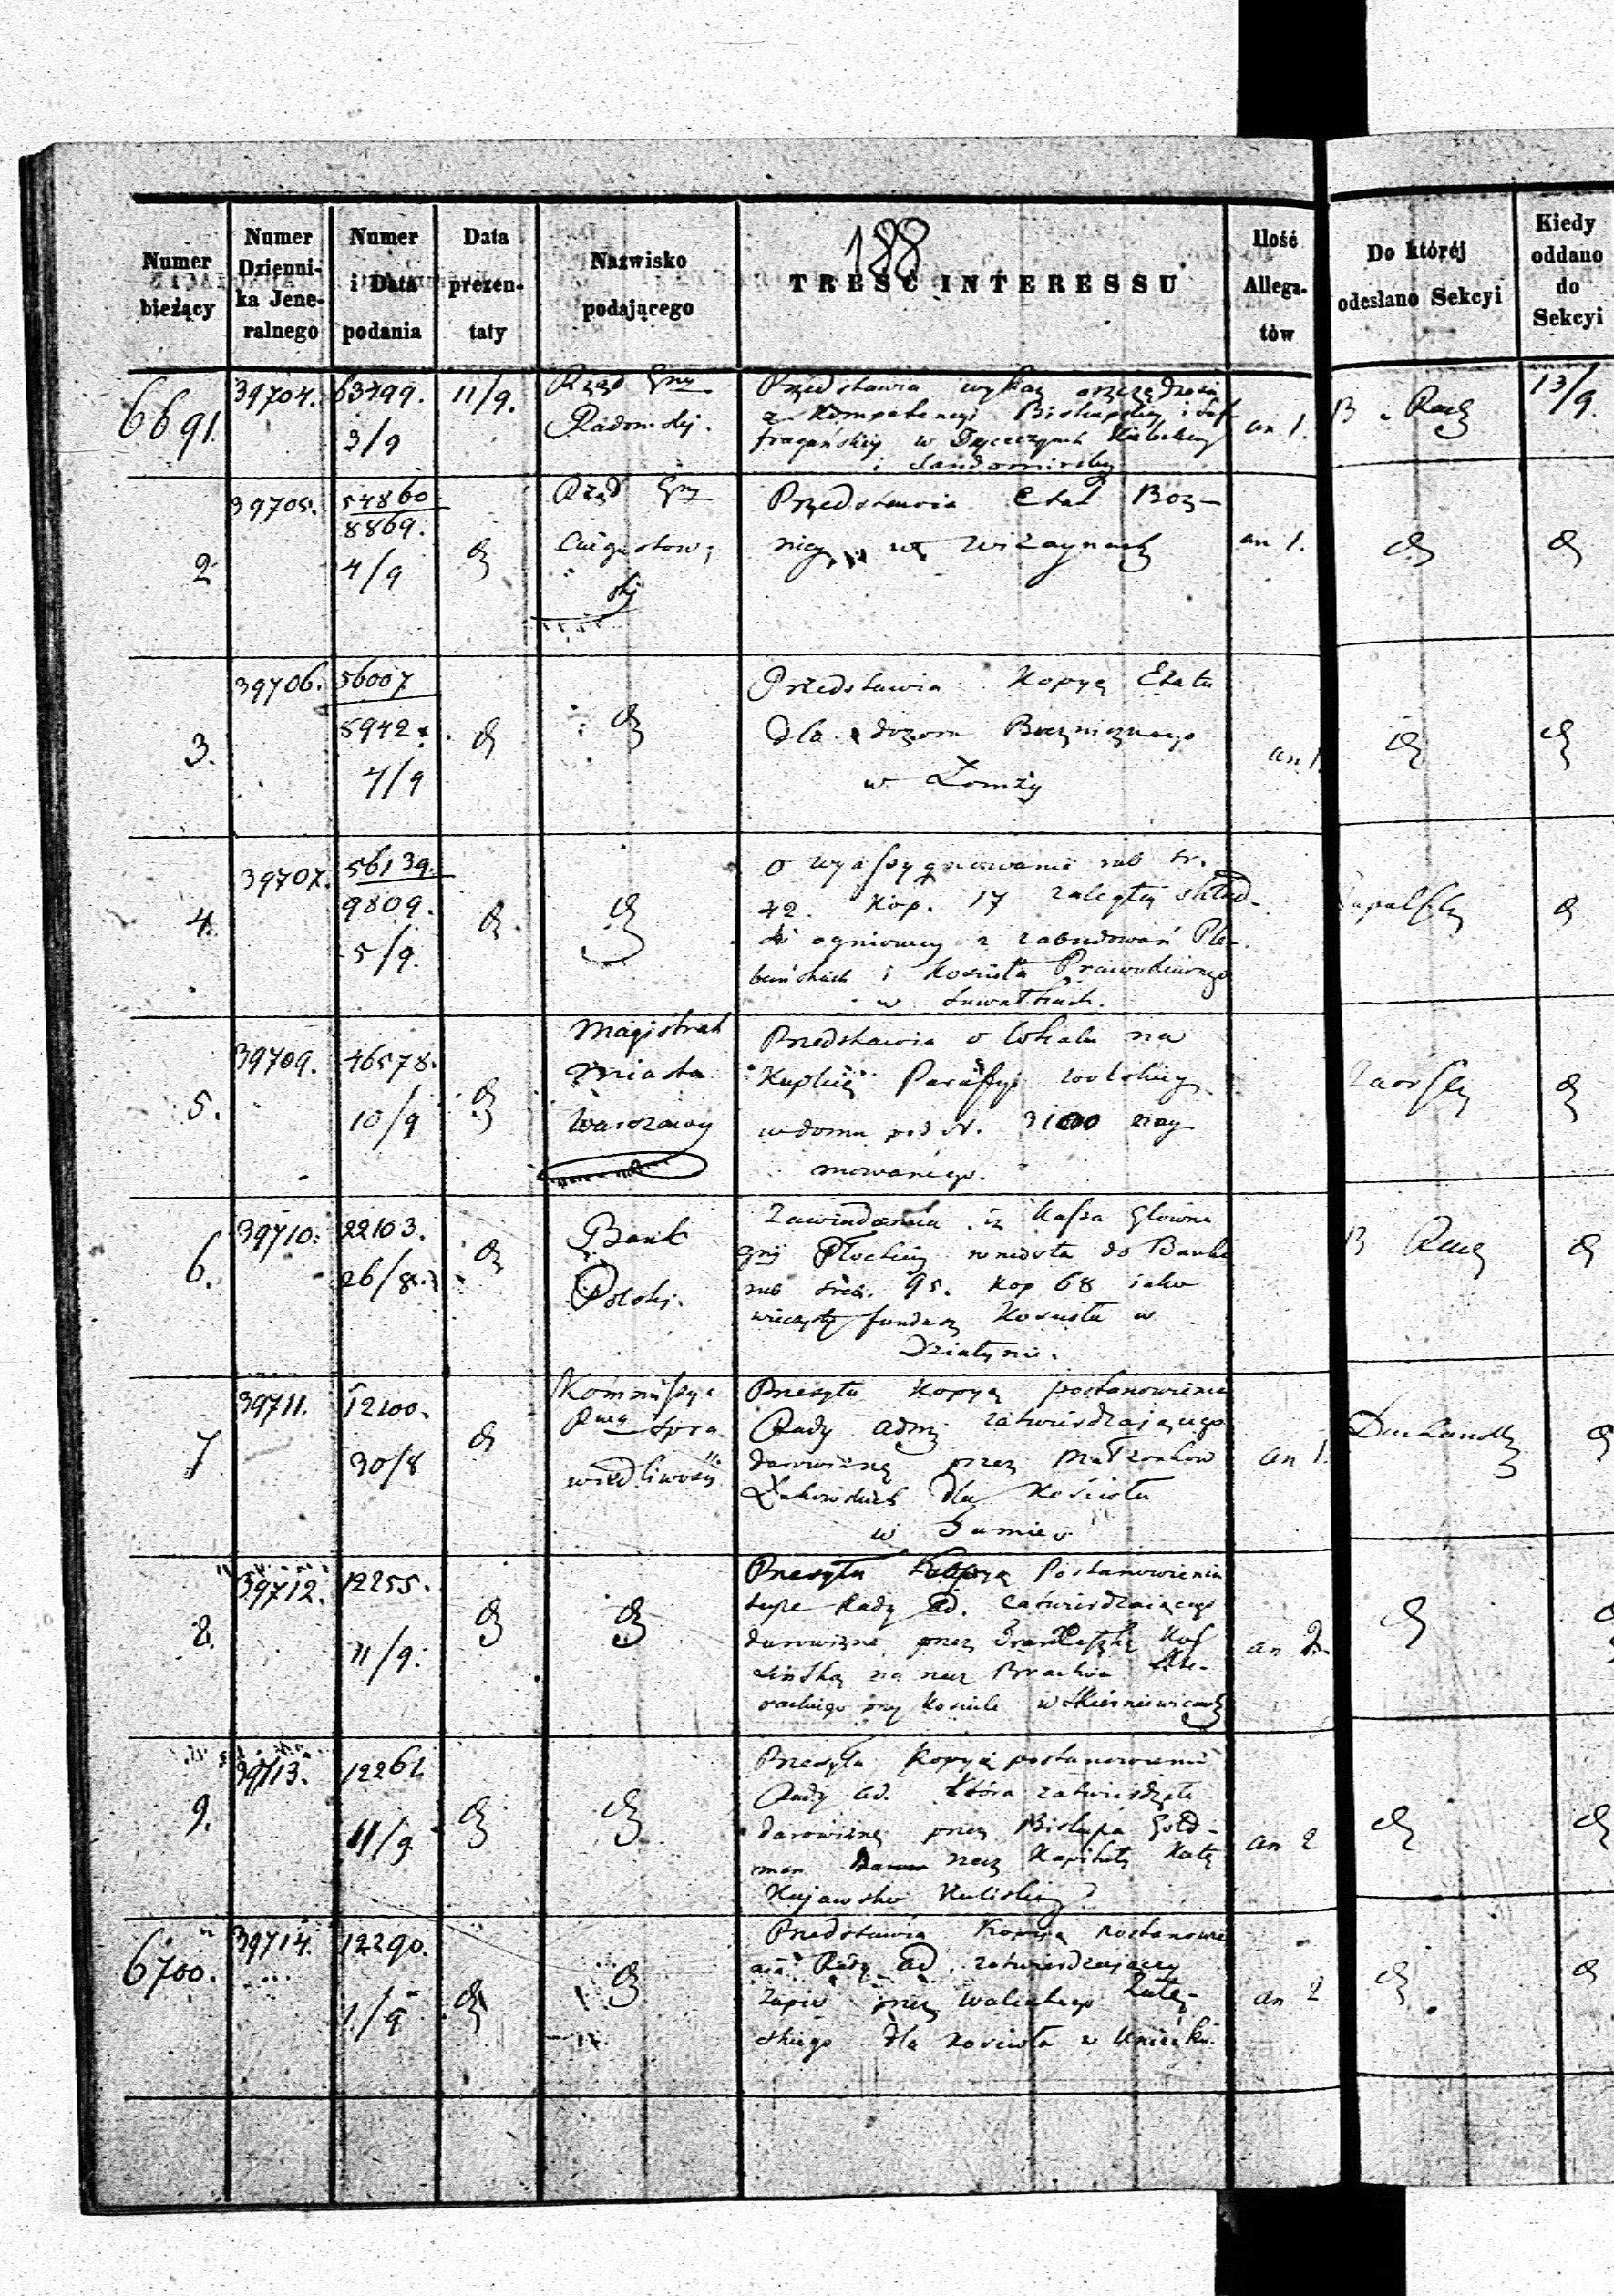 188
Numer bieżący
Numer Dzienni-ka Jene-ralnego
Numer i Data podania
Data prezen-taty
Nazwisko podającego
TREŚĆ INTERESSU
Ilość Allega-tów
Do której odesłano Sekcyi
Kiedy oddano do Sekcyi
6691.
39704.
63499.
3/9
11/9.
Rząd Gny
Radomskiej.
Przedstawia wykaz oszczędności
z Kompetencyi Biskupiej i Suf
fragańskiej w Dyecezyach Kieleckiej
i Sandomirskiej
an 1.
13/9.
2
39705.
54860
8869.
4/9
Rząd Gny
Augustow;
skiej
Przedstawia Etat Boż-
nicy w Wiżaynach
an 1.
3.
39706.
56007
8942
4/9
Przedstawia Kopyą Etatu
dla dozoru Bożnicznego
w Łomży
an 1.
4.
39707.
56139.
9809.
5/9.
O wyassygnowanie rub sr.
42. Kop. 17 zaległej skład-
ki ogniowey z zabudowań Ple-
bańskich i Kościoła Prawosławnego
w Suwałkach.
5.
39709.
46578.
10/9
Magistrat
Miasta
Warszawy
Przedstawia o lokalu na
Kaplicę Parafyi wolskiey
w domu pod N. 3100 zay-
mowanego.
6.
39710.
22103.
26/8.
Bank
Polski.
Zawiadamia iż Kassa Główna
gnij Płockiej wniosła do Banku
rub sreb. 95. Kop 68 iako
wieczysty fundusz Kościoła w
Działyniu.
7
39711.
12100.
30/8
Kommissya
Rwa Spra
wiedliwości
Przesyła Kopyą postanowienia
Rady Admj zatwierdzającego
darowiznę przez małżonków
Żukowskich dla Kościoła
w
an 1.
8.
39712.
12255.
11/9.
Przesyła Kopyą Postanowienia
Rady Ad. zatwierdzającego
darowiznę przez Franciszkę
na rzecz Bractwa
przy Kościele w Skierniewicach
an 2.
9.
39713.
12262
11/9
Przesyła Kopyą postanowienia
Rady Ad. która zatwierdziła
darowiznę przez Biskupa Gold-
man rzecz Kapituły Kate
Kujawsko Kaliskiej
an 2
6700.
39714.
12290.
1/9
Przedstawia Kopyą Postanowie
nia Rady Ad. zatwierdzający
zapis przez Walentego Zału-
skiego dla Kościoła w Unieck.
an 2